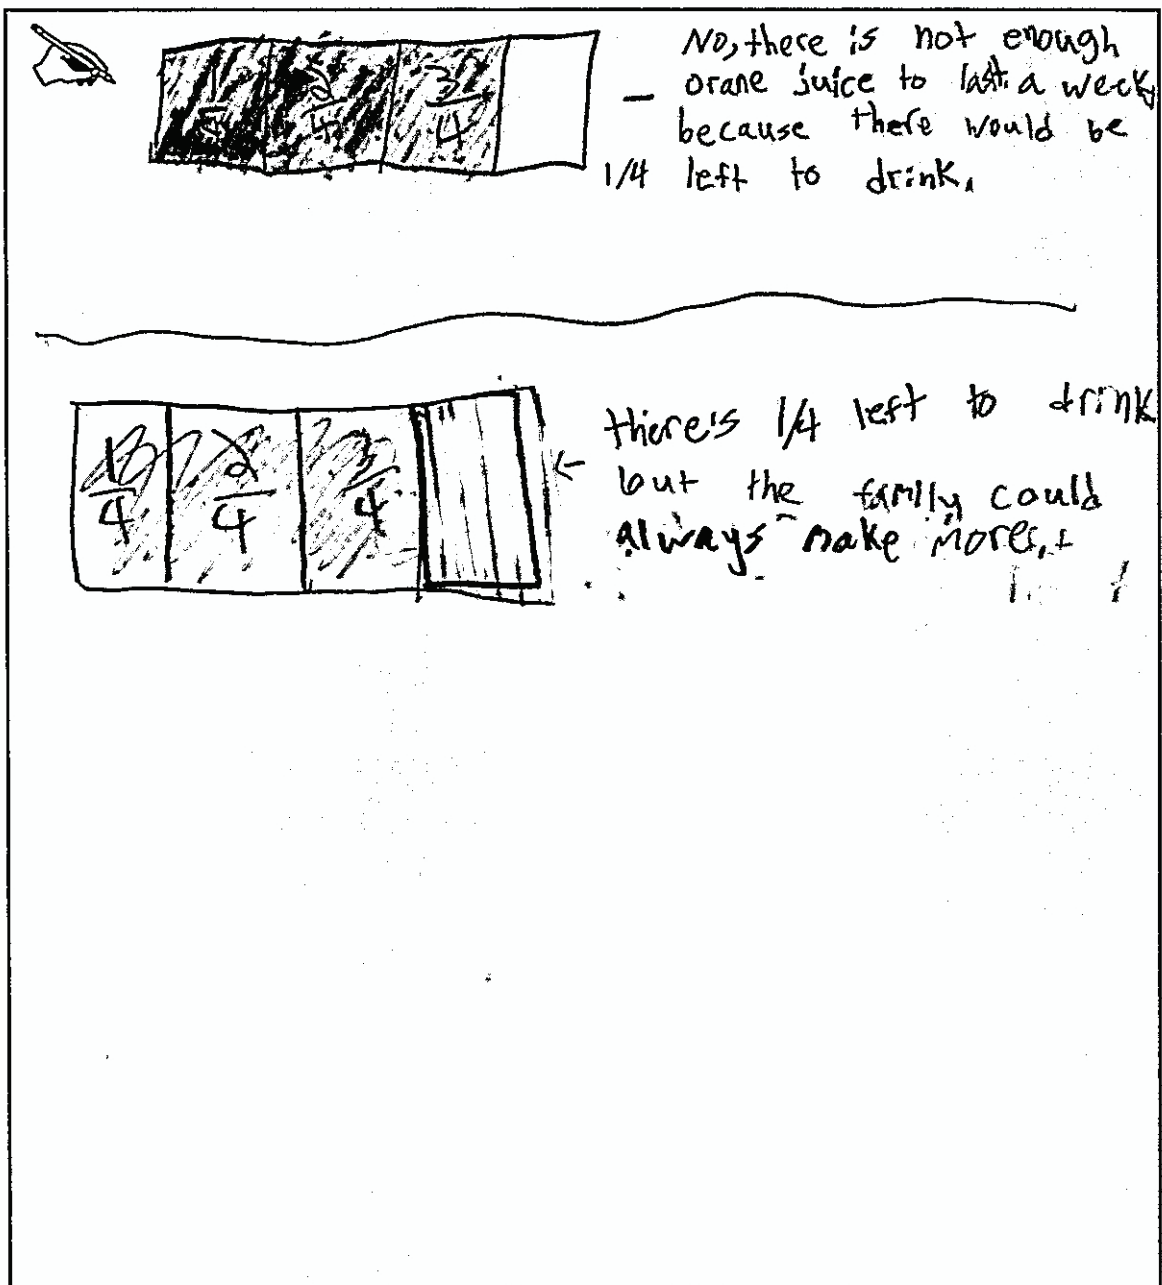 1/4 2/4 3/4
No, there is not enough
— orane juice to last a week,
because there would be
1/4 left to drink.
1/4 2/4 3/4
← there's 1/4 left to drink
but the family could
always make more.